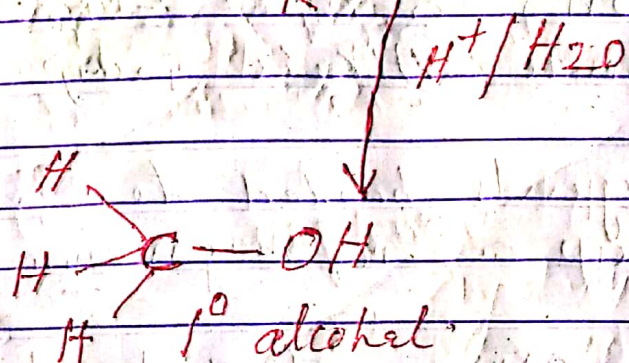 H+/H2O
H
H C — OH
H 1° alcohol.